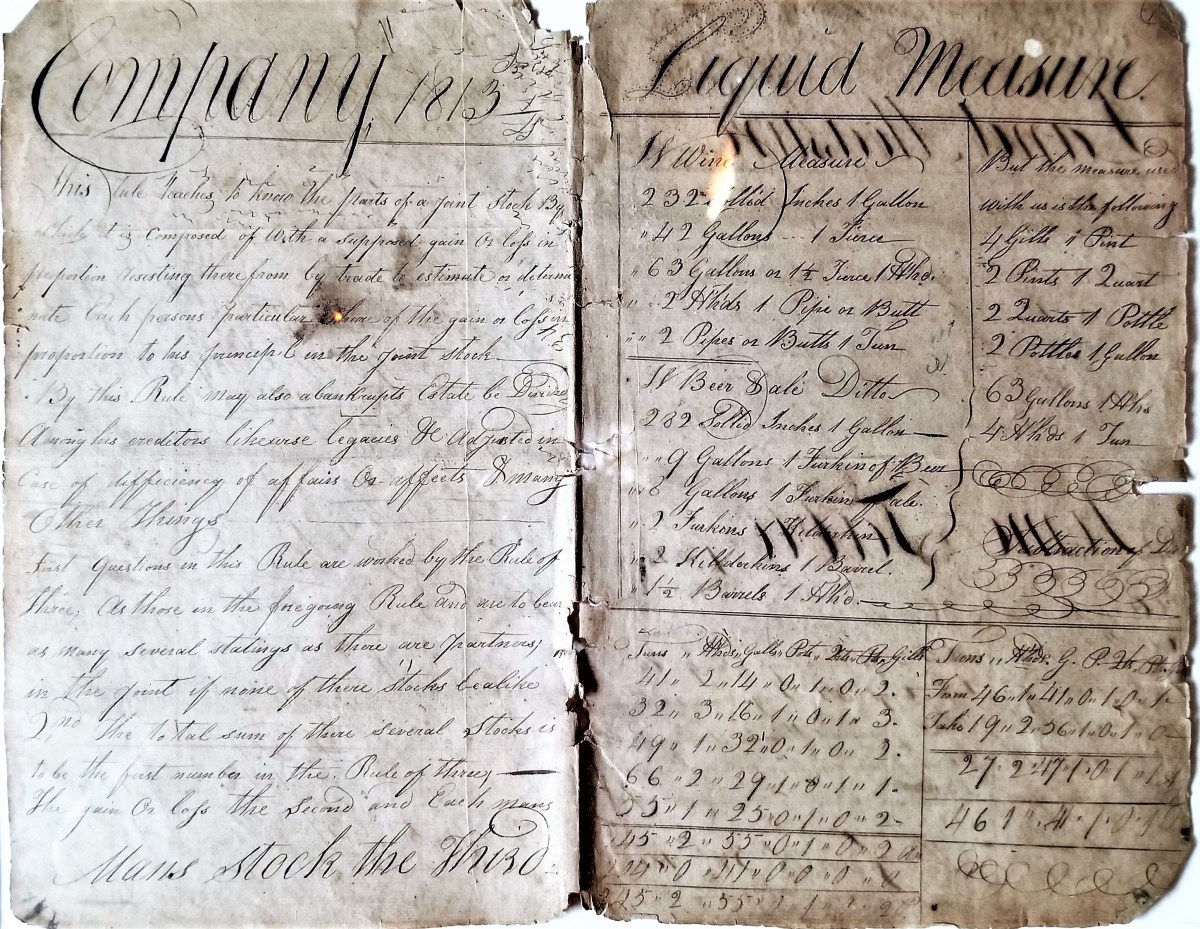 Company, 1813
This Rule teaches to know the parts of a joint stock By
which it is Composed of With a supposed gain Or loss in
proportion there from by trade to estimate or determi
nate Each persons particular share of the gain or loss in
proportion to his principl in the joint stock
By this Rule may also a bankrupts Estate be Divided
Among his creditors likewise legacies &c Adjusted in
Case of difficiency of affairs Or affects & many
Other Things
First Questions in this Rule are worked by the Rule of
three, As those in the foregoing Rule and are to bear
as many several statings as there are partners;
in the joint if none of there Stocks be alike
2nd The total sum of there several Stocks is
to be the first number in the Rule of three,
The gain Or loss the Second and Each mans
Mans stock the Third
Liquid Measure
Wine Measure
232 Sollid Inches 1 Gallon
" 42 Gallons 1 Tierce
" 63 Gallons or 1½ Tierce 1 Hhd.
" 2 Hhds 1 Pipe or Butt
" " 2 Pipes or Butts 1 Tun
Beer & ale Ditto
282 Sollid Inches 1 Gallon
" " 9 Gallons 1 Furkin of Beer
" 8 Gallons 1 Furkin ale.
" 2 Furkins Kilderkin
" 2 Killderkins 1 Barrel.
" 1½ Barrels 1 Hhd.
But the measure used
with us is the following
4 Gills 1 Pint
2 Pints 1 Quart
2 Quarts 1 Pottle
2 Pottles 1 Gallon
63 Gallons 1 Hhd
4 Hhds 1 Tun
Subtraction of
Tuns " Hhds " Galls " Pots " Qts " Pts " Gills
41 " 2 " 14 " 0 " 1 " 0 " 2.
32 " 3 " 16 " 1 " 0 " 1 " 3.
49 " 1 " 32 " 0 " 1 " 0 " 2.
66 " 2 " 29 " 1 " 0 " 1 " 1.
55 " 1 " 25 " 0 " 1 " 0 " 2
45 " 2 " 55 " 0 " 1 " 0 " 2
0 " 41 " 0 " 0 " 0 " 0
245 " 2 " 55
Tuns " Hhds. G. P. Qts
From 46 " 1 " 41 " 0 " 1 " 0 " 1
Take 19 " 2 " 56 " 1 " 0 " 1 " 0
27 " 2 " 47 " 1 " 0 " 1 " 1
46 1 " 41